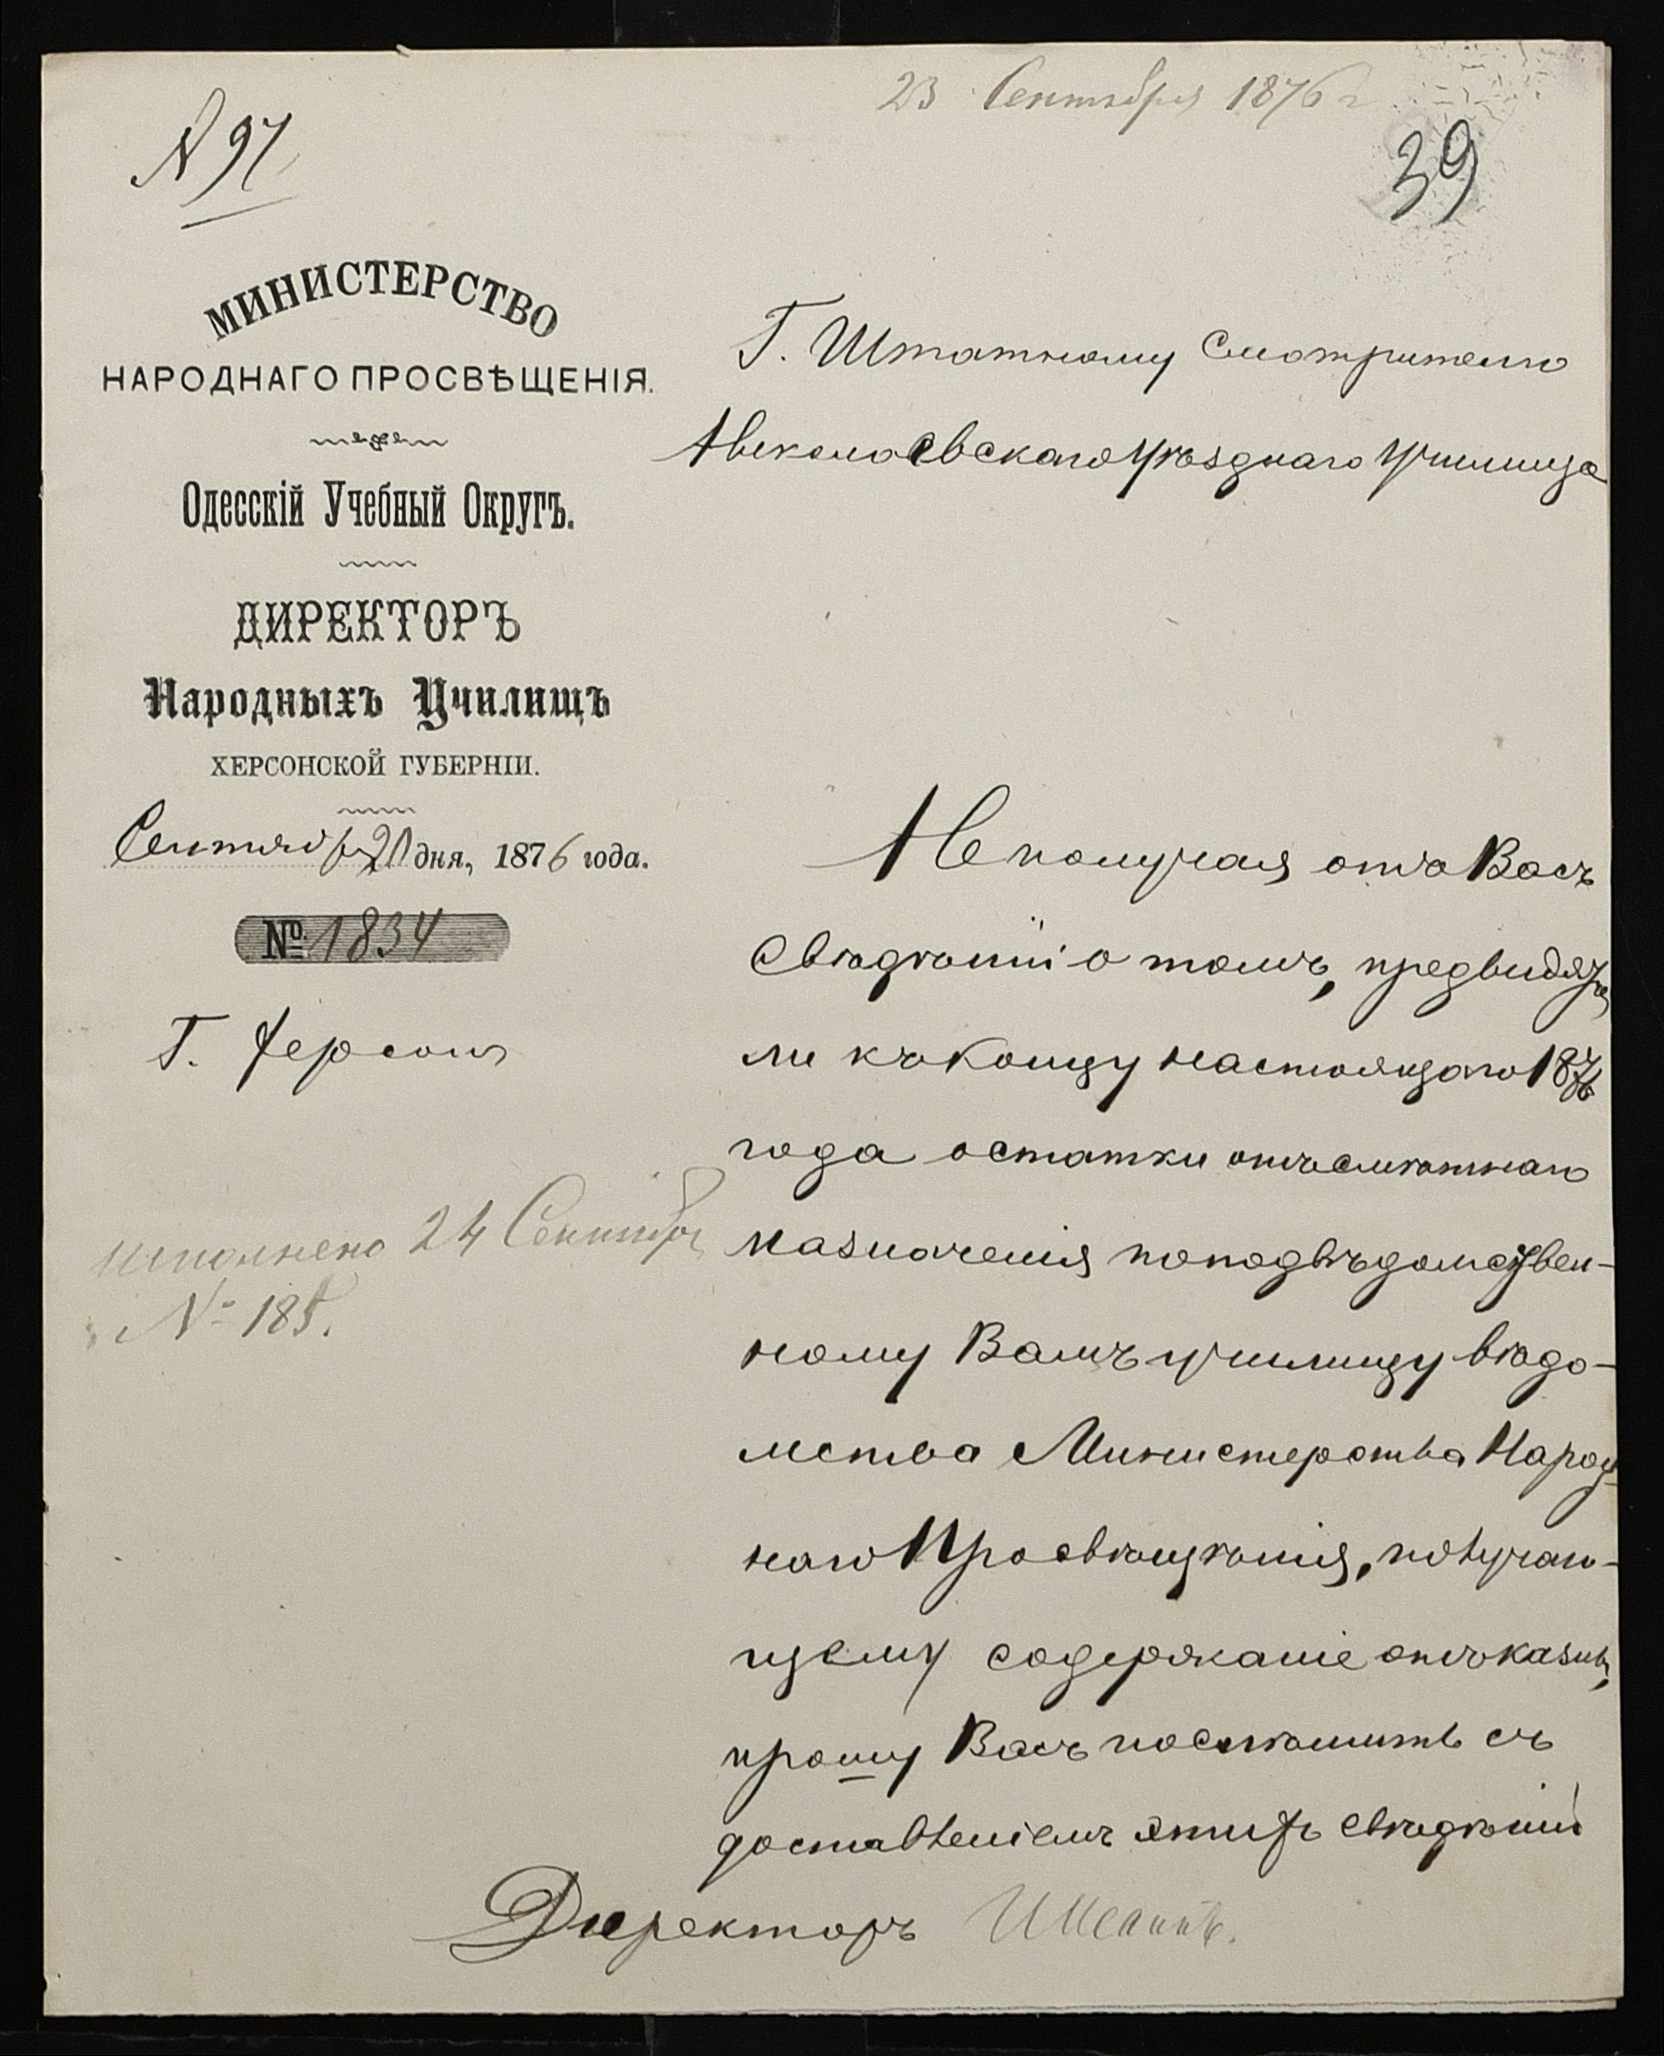 23 Сентября 1876 г
№ 97
39
МИНИСТЕРСТВО
НАРОДНАГО ПРОСВѢЩЕНІЯ.
Одесскій Учебный Округъ.
ДИРЕКТОРЪ
Народныхъ Училищъ
ХЕРСОНСКОЙ ГУБЕРНІИ.
Сентябр 20 дня, 1876 года.
№ 1834
Г. Херсонъ
исполнено 24 Сентября
№ 185.
Г. Штатному Смотрителю
Николаевскаго Уѣзднаго Училища
Не получая отъ Васъ
свѣдѣній о томъ, предвидятся
ли къ концу настоящаго 1876
года остатки отъ смѣтнаго
назначенія по подвѣдомствен-
ному Вамъ училищу вѣдо-
мства Министерства Народ-
наго Просвѣщенія, получаю-
щему содержаніе отъ казны,
прошу Васъ поспѣшить съ
доставленіемъ этихъ свѣдѣній
Директоръ